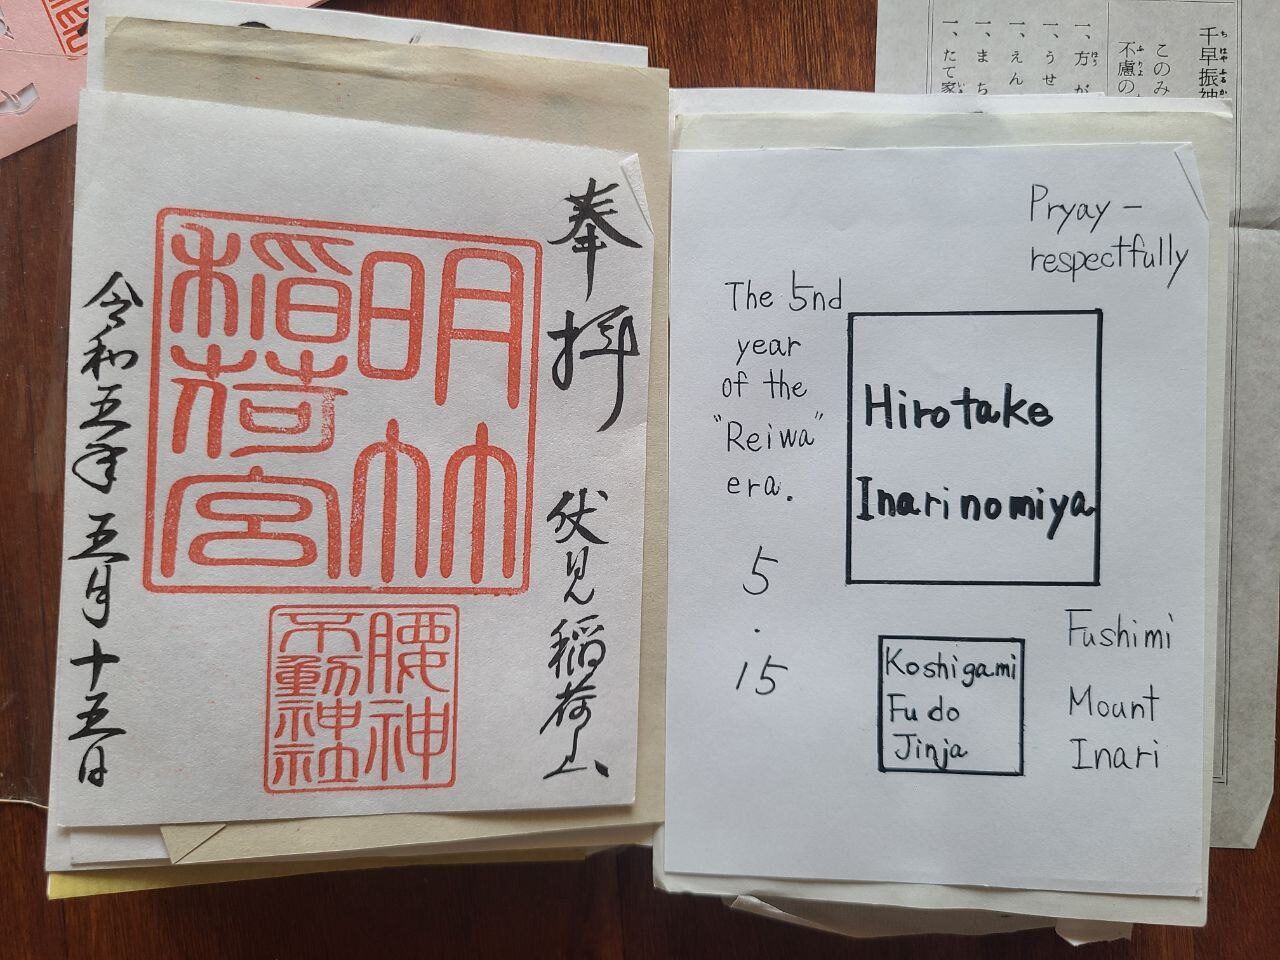 奉拝 伏見稲荷山
明竹
稲荷宮
腰神
不動神社
令和五年五月十五日
Pryay -
respectfully
The 5nd
year
of the
"Reiwa"
era.
5
.
15
Hirotake
Inarinomiya
Koshigami
Fudo
Jinja
Fushimi
Mount
Inari
千早振神
このみ
不慮の
一、方が
一、うせ
一、えん
一、まち
一、たて家